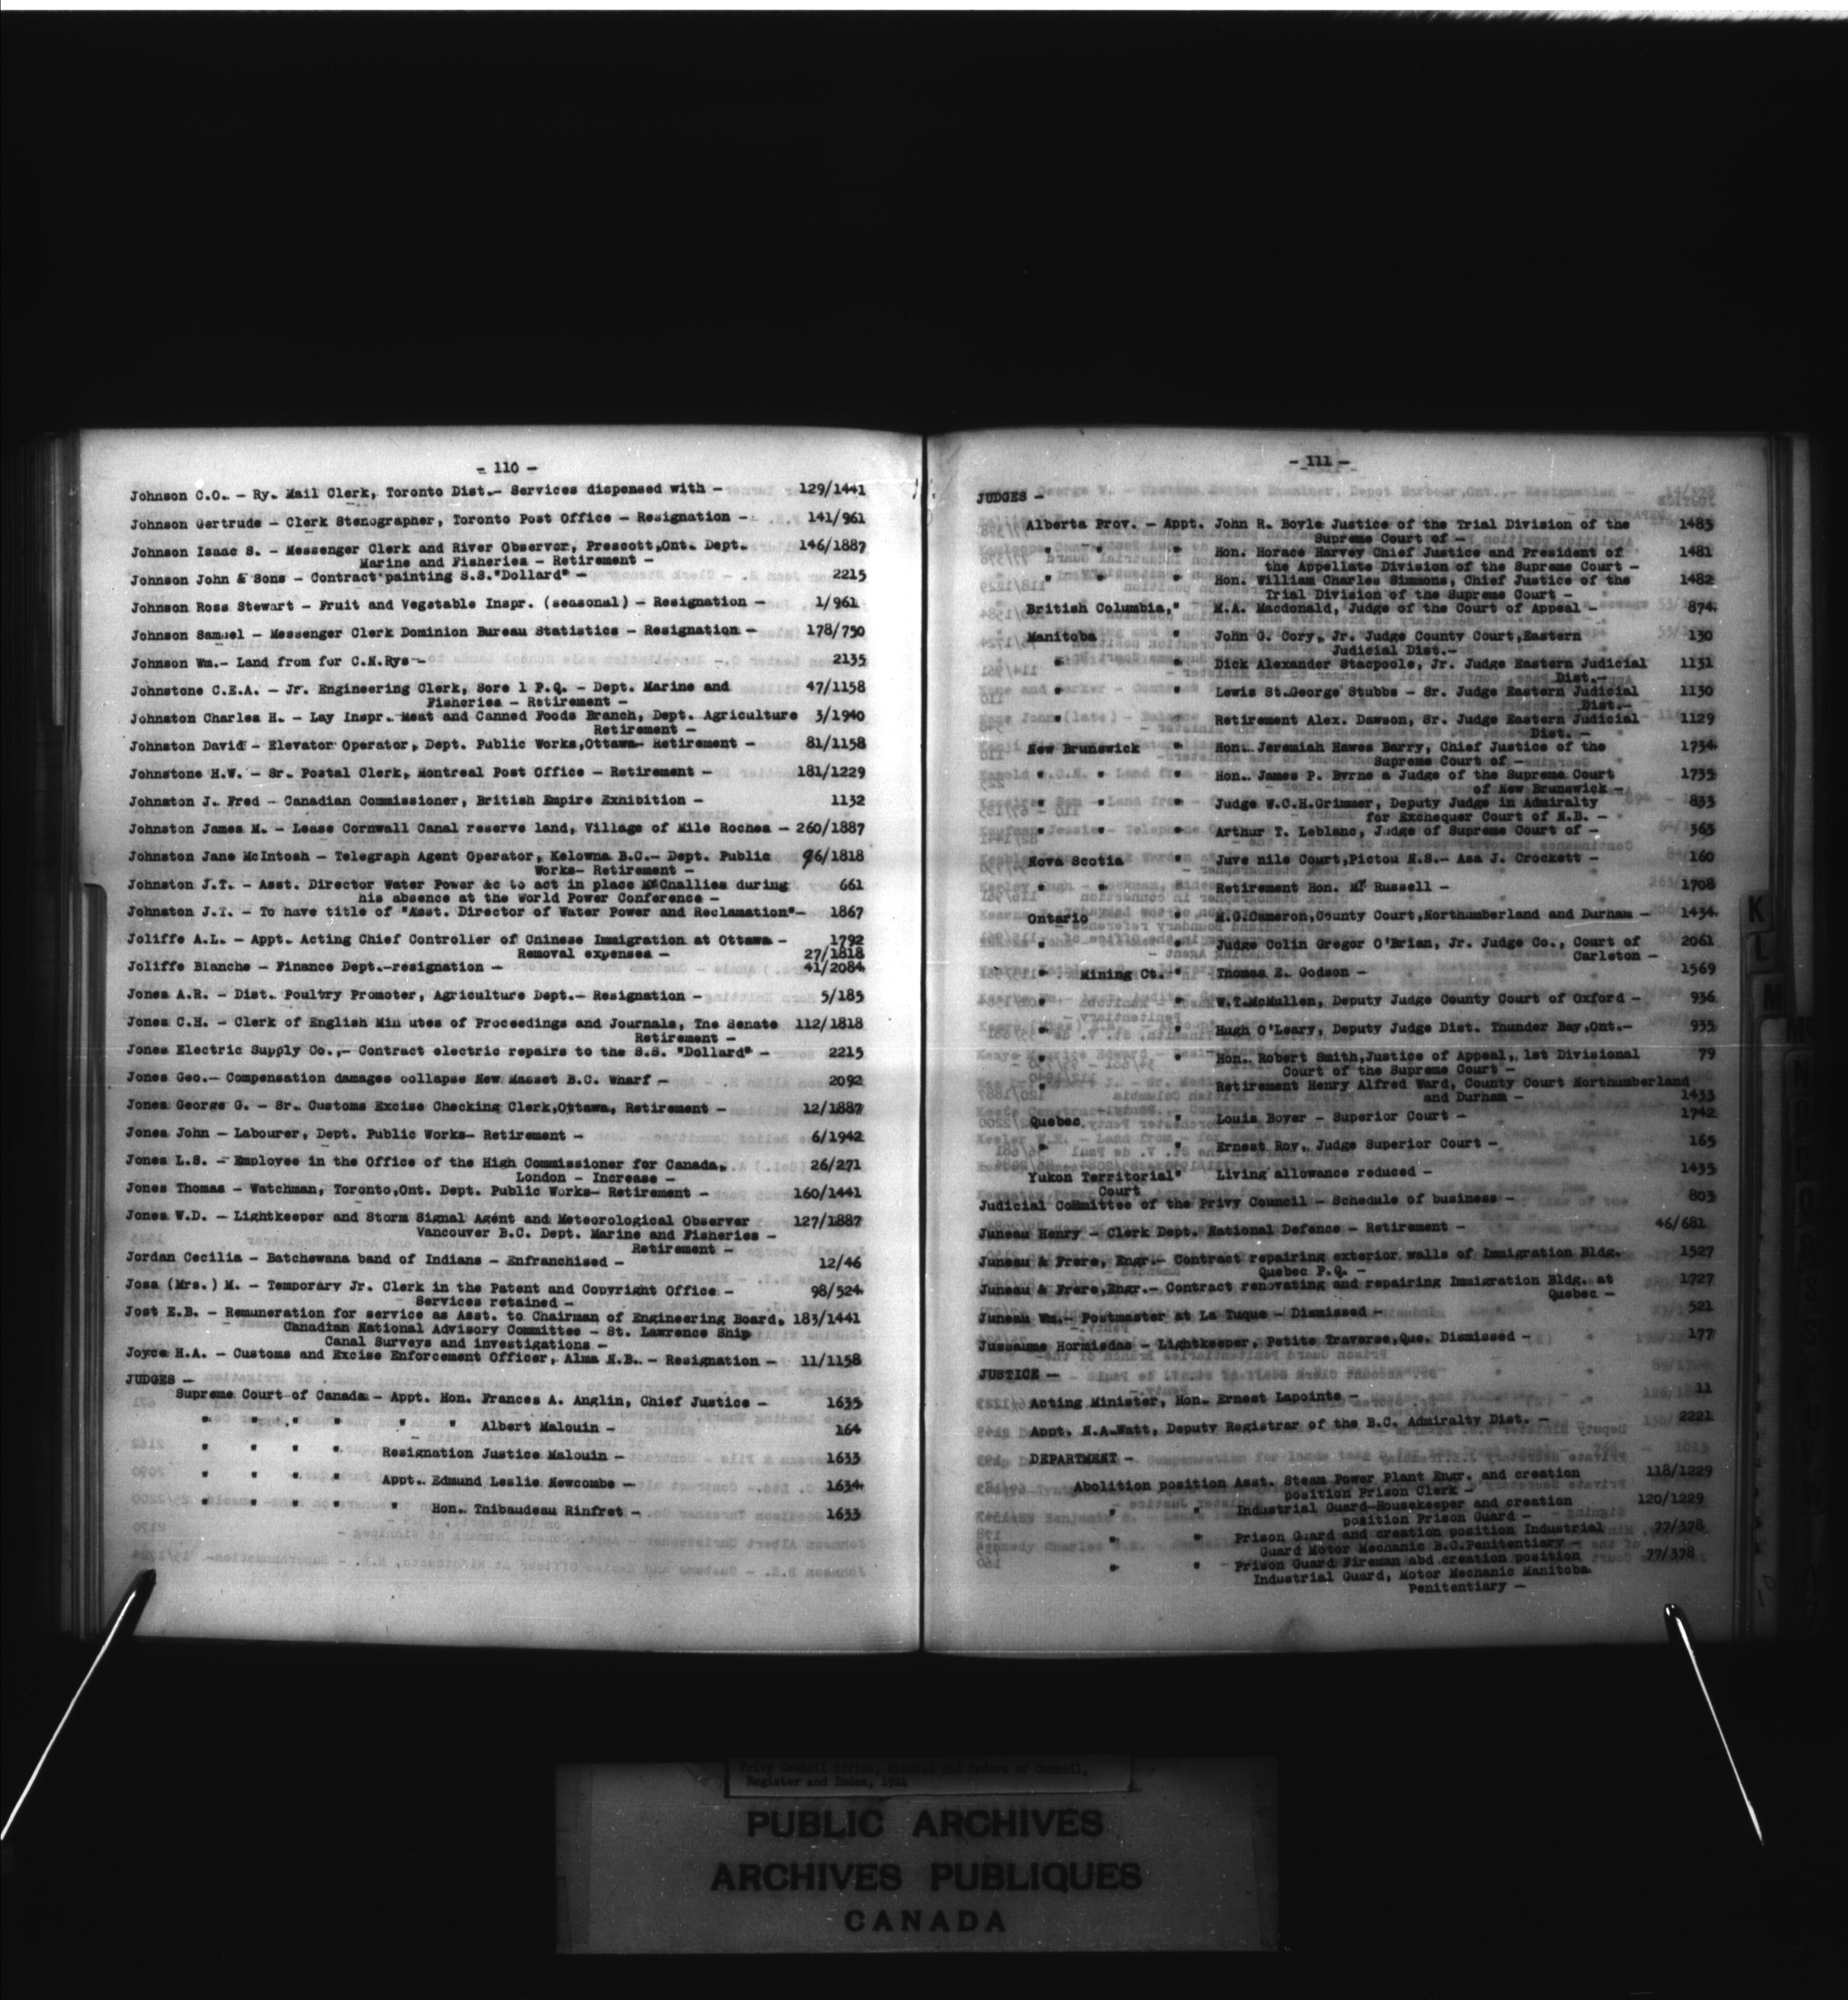 - 110 -
Johnson C.O. - Ry. Mail Clerk, Toronto Dist.- Services dispensed with - 129/1441
Johnson Gertrude - Clerk Stenographer, Toronto Post Office - Resignation - 141/961
Johnson Isaac S. - Messenger Clerk and River Observer, Prescott,Ont. Dept. 146/1887
Marine and Fisheries - Retirement -
Johnson John & Sons - Contract painting S.S."Dollard" - 2215
Johnson Ross Stewart - Fruit and Vegetable Inspr. (seasonal) - Resignation - 1/961
Johnson Samuel - Messenger Clerk Dominion Bureau Statistics - Resignation - 178/750
Johnson Wm.- Land from for C.N.Rys - 2135
Johnstone C.E.A. - Jr. Engineering Clerk, Sore l P.Q. - Dept. Marine and 47/1158
Fisheries - Retirement -
Johnston Charles H. - Lay Inspr. Meat and Canned Foods Branch, Dept. Agriculture 3/1940
Retirement -
Johnston David - Elevator Operator, Dept. Public Works,Ottawa- Retirement - 81/1158
Johnstone H.W. - Sr. Postal Clerk, Montreal Post Office - Retirement - 181/1229
Johnston J. Fred - Canadian Commissioner, British Empire Exhibition - 1132
Johnston James M. - Lease Cornwall Canal reserve land, Village of Mile Roches - 260/1887
Johnston Jane McIntosh - Telegraph Agent Operator, Kelowna B.C.- Dept. Public 96/1818
Works- Retirement -
Johnston J.T. - Asst. Director Water Power &c to act in place McCnallies during 661
his absence at the World Power Conference -
Johnston J.T. - To have title of "Asst. Director of Water Power and Reclamation"- 1867
Joliffe A.L. - Appt. Acting Chief Controller of Chinese Immigration at Ottawa - 1792
Removal expenses - 27/1818
Joliffe Blanche - Finance Dept.-resignation - 41/2084
Jones A.R. - Dist. Poultry Promoter, Agriculture Dept.- Resignation - 5/185
Jones C.H. - Clerk of English Min utes of Proceedings and Journals, The Senate 112/1818
Retirement -
Jones Electric Supply Co.,- Contract electric repairs to the S.S. "Dollard" - 2215
Jones Geo.- Compensation damages collapse New Masset B.C. Wharf - 2092
Jones George G. - Sr. Customs Excise Checking Clerk,Ottawa, Retirement - 12/1887
Jones John - Labourer, Dept. Public Works- Retirement - 6/1942
Jones L.S. - Employee in the Office of the High Commissioner for Canada, 26/271
London - Increase -
Jones Thomas - Watchman, Toronto,Ont. Dept. Public Works- Retirement - 160/1441
Jones W.D. - Lightkeeper and Storm Signal Agent and Meteorological Observer 127/1887
Vancouver B.C. Dept. Marine and Fisheries -
Retirement -
Jordan Cecilia - Batchewana band of Indians - Enfranchised - 12/46
Josa (Mrs.) M. - Temporary Jr. Clerk in the Patent and Copyright Office - 98/524
Services retained -
Jost E.B. - Remuneration for service as Asst. to Chairman of Engineering Board, 183/1441
Canadian National Advisory Committee - St. Lawrence Ship
Canal Surveys and investigations -
Joyce H.A. - Customs and Excise Enforcement Officer, Alma N.B. - Resignation - 11/1158
JUDGES -
Supreme Court of Canada - Appt. Hon. Frances A. Anglin, Chief Justice - 1635
" " " " " " Albert Malouin - 164
" " " " Resignation Justice Malouin - 1633
" " " " Appt. Edmund Leslie Newcombe - 1634
" " " " " Hon. Thibaudeau Rinfret - 1633
- 111 -
JUDGES -
Alberta Prov. - Appt. John R. Boyle Justice of the Trial Division of the 1483
Supreme Court of -
" " " Hon. Horace Harvey Chief Justice and President of 1481
the Appellate Division of the Supreme Court -
" " " Hon. William Charles Simmons, Chief Justice of the 1482
Trial Division of the Supreme Court -
British Columbia," M.A. Macdonald, Judge of the Court of Appeal - 874
Manitoba " John G. Cory, Jr. Judge County Court,Eastern 130
Judicial Dist.-
" " Dick Alexander Stacpoole, Jr. Judge Eastern Judicial 1131
Dist.-
" " Lewis St.George Stubbs - Sr. Judge Eastern Judicial 1130
Dist.-
Retirement Alex. Dawson, Sr. Judge Eastern Judicial 1129
Dist. -
New Brunswick " Hon. Jeremiah Hawes Barry, Chief Justice of the 1734
Supreme Court of -
" " " Hon. James P. Byrne a Judge of the Supreme Court 1735
of New Brunswick -
" " " Judge W.C.H.Grimmer, Deputy Judge in Admiralty 833
for Exchequer Court of N.B. -
" " " Arthur T. Leblanc, Judge of Supreme Court of - 365
Nova Scotia " Juve nile Court,Pictou N.S.- Asa J. Crockett - 160
" " Retirement Hon. Mr Russell - 1708
Ontario " M.G.Cameron,County Court,Northumberland and Durham - 1434
" " Judge Colin Gregor O'Brian, Jr. Judge Co., Court of 2061
Carleton -
" Mining Ct." Thomas E. Godson - 1569
" " W.T.McMullen, Deputy Judge County Court of Oxford - 936
" " Hugh O'Leary, Deputy Judge Dist. Thunder Bay,Ont.- 935
" " Hon. Robert Smith,Justice of Appeal, 1st Divisional 79
Court of the Supreme Court -
" Retirement Henry Alfred Ward, County Court Northumberland
and Durham - 1433
Quebec, " Louis Boyer - Superior Court - 1742
" " Ernest Roy, Judge Superior Court - 165
Yukon Territorial" Living allowance reduced - 1435
Court
Judicial Committee of the Privy Council - Schedule of business - 803
Juneau Henry - Clerk Dept. National Defence - Retirement - 46/681
Juneau & Frere, Engr.- Contract repairing exterior walls of Immigration Bldg. 1527
Quebec P.Q. -
Juneau & Frere,Engr.- Contract renovating and repairing Immigration Bldg. at 1727
Quebec -
Juneau Wm.- Postmaster at La Tuque - Dismissed - 521
Jussaume Hormisdas - Lightkeeper, Petite Traverse,Que. Dismissed - 177
JUSTICE -
Acting Minister, Hon. Ernest Lapointe - 11
Appt. N.A.Watt, Deputy Registrar of the B.C. Admiralty Dist. - 2221
DEPARTMENT -
Abolition position Asst. Steam Power Plant Engr. and creation 118/1229
position Prison Clerk -
" " Industrial Guard-Housekeeper and creation 120/1229
position Prison Guard -
" " Prison Guard and creation position Industrial 77/378
Guard Motor Mechanic B.C.Penitentiary -
" " Prison Guard Fireman abd creation position 77/378
Industrial Guard, Motor Mechanic Manitoba
Penitentiary -
K
L
M
Privy Council Office, Minutes and Orders of Council,
Register and Index, 1924
PUBLIC ARCHIVES
ARCHIVES PUBLIQUES
CANADA